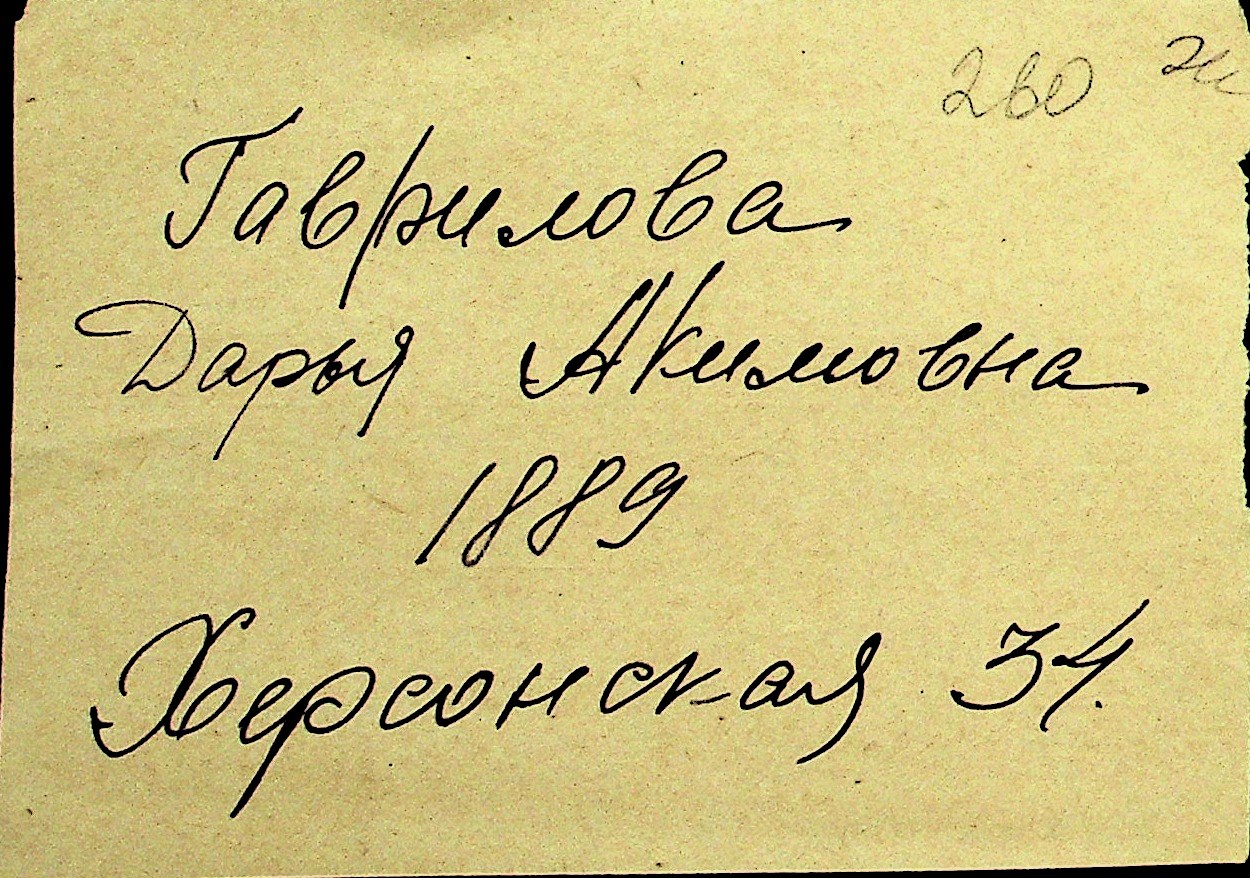 260 ж
Гаврилова
Дарья Акимовна
1889
Херсонская 34.